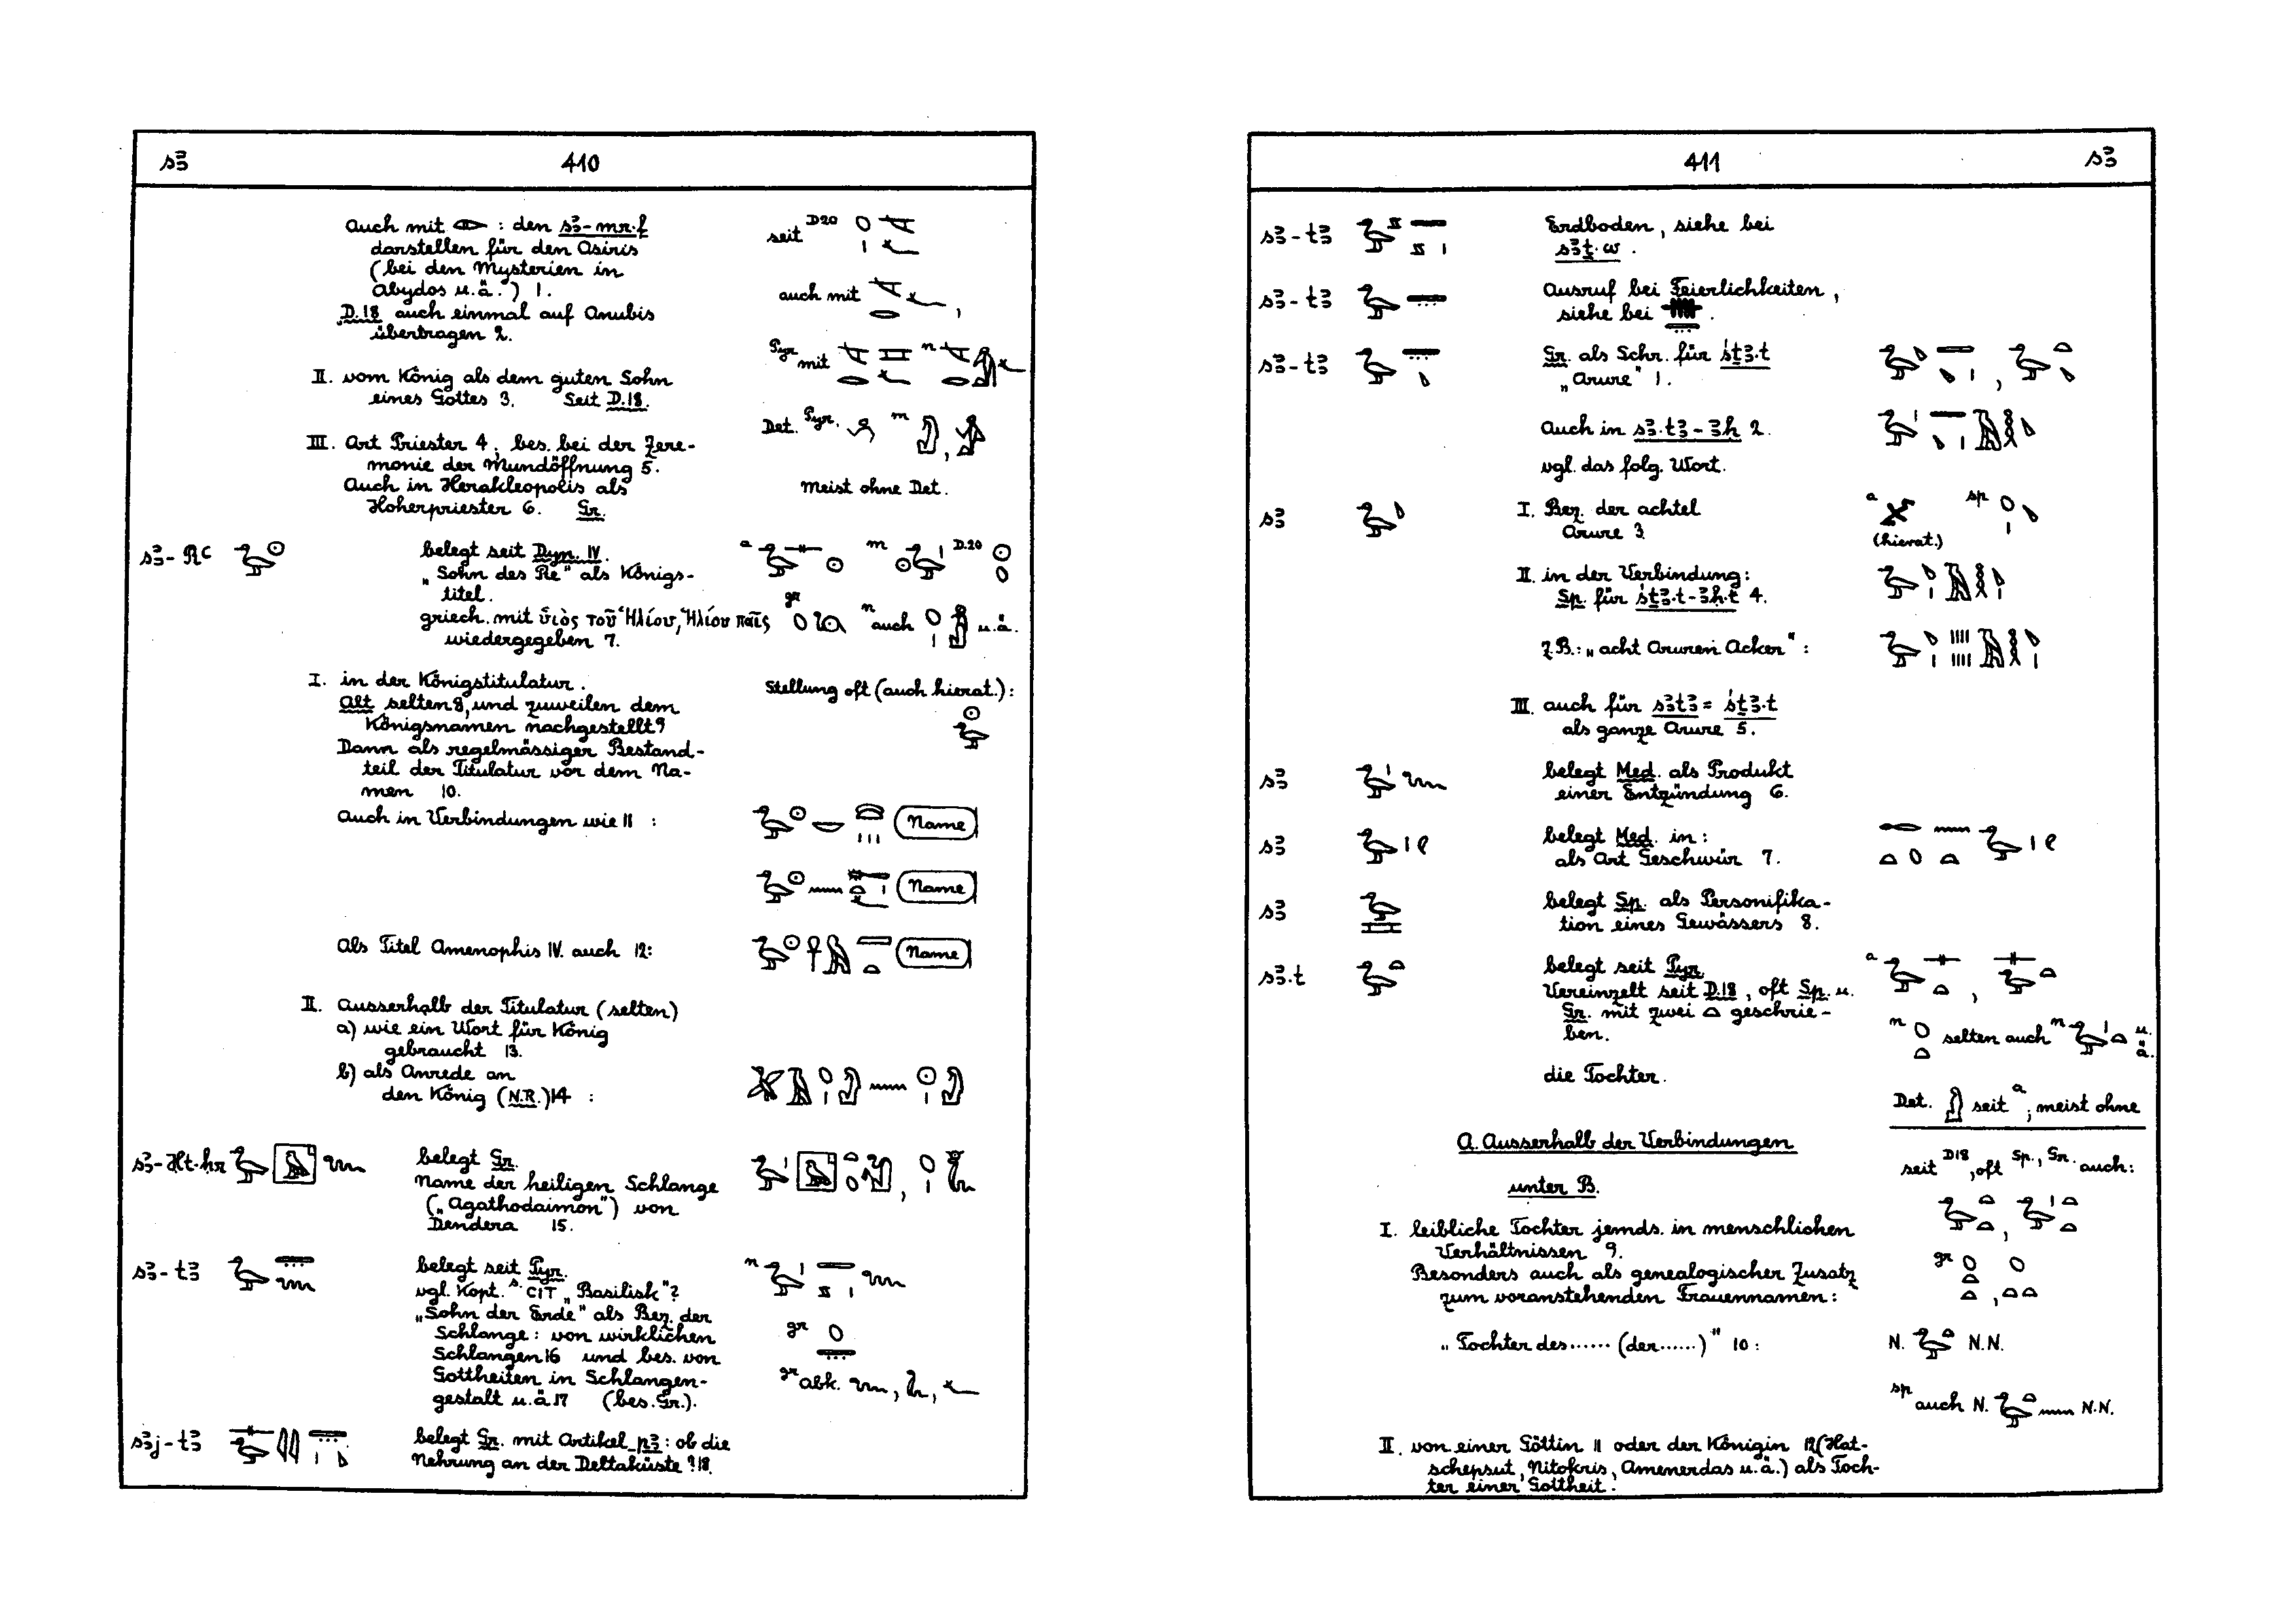 sꜣ 410
Auch mit : den sꜣ-mr.f
darstellen für den Osiris
(bei den Mysterien in
Abydos u.ä.) 1.
D.18 auch einmal auf Anubis
übertragen 2.
seit D20
auch mit ,
Pyr mit n
II. vom König als dem guten Sohn
eines Gottes 3. Seit D.18.
III. Art Priester 4, bes. bei der Zere-
monie der Mundöffnung 5.
Auch in Herakleopolis als
Hoherpriester 6. Gr.
Det. Pyr. m ,
Meist ohne Det.
sꜣ-Rꜥ
belegt seit Dyn. IV.
„Sohn des Re" als Königs-
titel.
griech. mit υἱὸς τοῦ Ἡλίου, Ἡλίου παῖς
wiedergegeben 7.
a m D.20
gr n auch u.ä.
I. in der Königstitulatur.
Alt selten 8, und zuweilen dem
Königsnamen nachgestellt 9
Dann als regelmässiger Bestand-
teil der Titulatur vor dem Na-
men 10.
Stellung oft (auch hierat.):
Auch in Verbindungen wie 11 :
Name
Name
Als Titel Amenophis IV. auch 12:
Name
II. Ausserhalb der Titulatur (selten)
a) wie ein Wort für König
gebraucht 13.
b) als Anrede an
den König (N.R.) 14 :
sꜣ-Ḥt-ḥr
belegt Gr.
Name der heiligen Schlange
(„Agathodaimon") von
Dendera 15.
sꜣ-tꜣ
belegt seit Pyr.
vgl. Kopt. s. ⲥⲓⲧ „Basilisk"?
„Sohn der Erde" als Bez. der
Schlange: von wirklichen
Schlangen 16 und bes. von
Gottheiten in Schlangen-
gestalt u.ä. 17 (bes. Gr.).
n
gr
gr abk. , ,
sꜣj-tꜣ
belegt Gr. mit Artikel pꜣ: ob die
Nehrung an der Deltaküste? 18.
411 sꜣ
sꜣ-tꜣ
Erdboden, siehe bei
sꜣṯ.w.
sꜣ-tꜣ
Ausruf bei Feierlichkeiten,
siehe bei .
sꜣ-tꜣ
Gr. als Schr. für śṯꜣ.t
„Arure" 1.
Auch in sꜣ.tꜣ-ꜣḥ 2.
vgl. das folg. Wort.
sꜣ
I. Bez. der achtel
Arure 3
a sp
(hierat.)
II. in der Verbindung:
Sp. für śṯꜣ.t-ꜣḥ.t 4.
z.B.: „acht Aruren Acker" :
III. auch für sꜣtꜣ = śṯꜣ.t
als ganze Arure 5.
sꜣ
belegt Med. als Produkt
einer Entzündung 6.
sꜣ
belegt Med. in:
als Art Geschwür 7.
sꜣ
belegt Sp. als Personifika-
tion eines Gewässers 8.
sꜣ.t
belegt seit Pyr.
Vereinzelt seit D.18, oft Sp. u.
Gr. mit zwei geschrie-
ben.
die Tochter.
a ,
n selten auch n u.ä.
Det. seit a, meist ohne
A. Ausserhalb der Verbindungen
unter B.
seit D18, oft Sp., Gr. auch:
I. leibliche Tochter jemds. in menschlichen
Verhältnissen 9.
Besonders auch als genealogischer Zusatz
zum voranstehenden Frauennamen:
gr ,
„Tochter des...... (der......)" 10:
N. N.N.
sp auch N. N.N.
II. von einer Göttin 11 oder der Königin 12 (Hat-
schepsut, Nitokris, Amenerdas u.ä.) als Toch-
ter einer Gottheit.